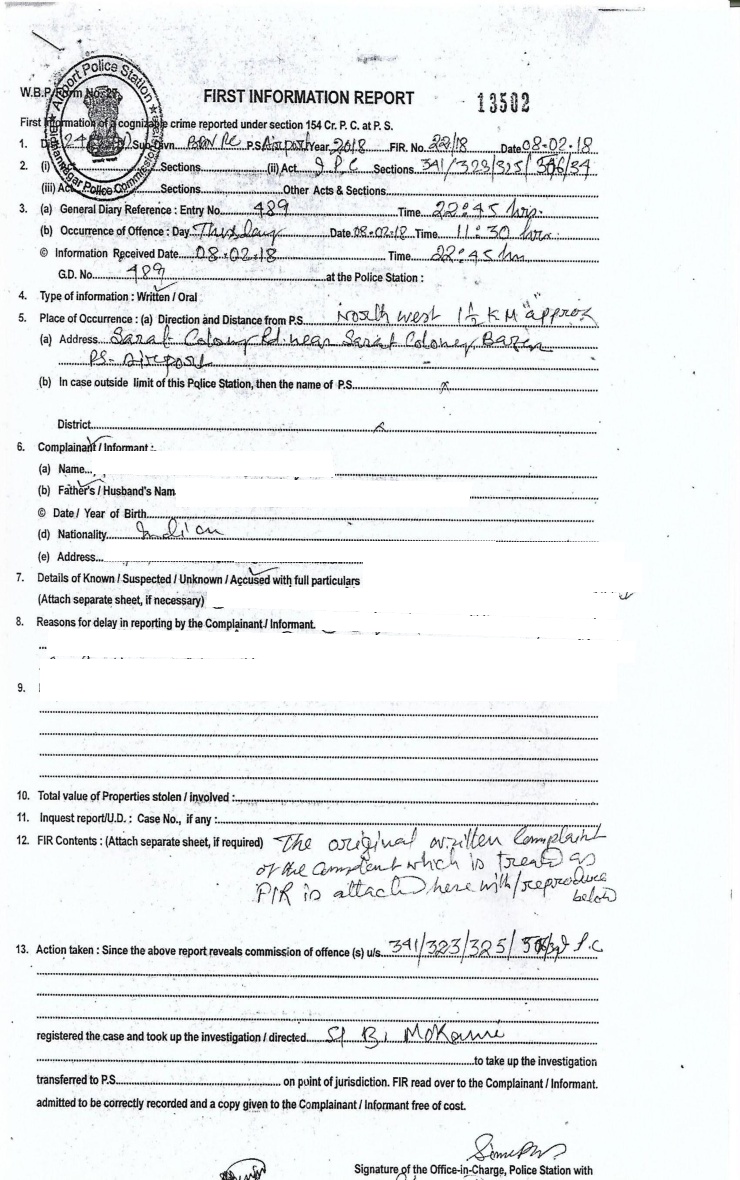 W.B.P. Form No. 27
FIRST INFORMATION REPORT
13502
Airport Police Station
First Information of a cognizable crime reported under section 154 Cr. P. C. at P. S.
1. Sub-Divn. P.S. Airport Year 2018 FIR. No. 22/18 Date 08-02-18
2. (i) Sections (ii) Act I.P.C Sections 341/323/325/506/34
(iii) Act Sections Other Acts & Sections
3. (a) General Diary Reference : Entry No. 489 Time 22:45 hrs.
(b) Occurrence of Offence : Day Thusday Date 08-02-18 Time 11:30 hrs
© Information Received Date 08-02-18 Time 22:45 hrs
G.D. No. 489 at the Police Station :
4. Type of information : Written / Oral
5. Place of Occurrence : (a) Direction and Distance from P.S. North west 1½ KM "approx"
(a) Address Sarat Colony Rd. near Sarat Colony Bazar
PS-Airport
(b) In case outside limit of this Police Station, then the name of P.S. x
District x
6. Complainant / Informant :
(a) Name
(b) Father's / Husband's Nam
© Date / Year of Birth
(d) Nationality Indian
(e) Address
7. Details of Known / Suspected / Unknown / Accused with full particulars
(Attach separate sheet, if necessary)
8. Reasons for delay in reporting by the Complainant / Informant.
9.
10. Total value of Properties stolen / involved :
11. Inquest report/U.D. : Case No., if any :
12. FIR Contents : (Attach separate sheet, if required) The original written Complaint
of the complent which is treated as
FIR is attached here with/reproduce
below
13. Action taken : Since the above report reveals commission of offence (s) u/s 341/323/325/506/34 I.P.C
registered the case and took up the investigation / directed SI B.
to take up the investigation
transferred to P.S. on point of jurisdiction. FIR read over to the Complainant / Informant.
admitted to be correctly recorded and a copy given to the Complainant / Informant free of cost.
Signature of the Office-in-Charge, Police Station with